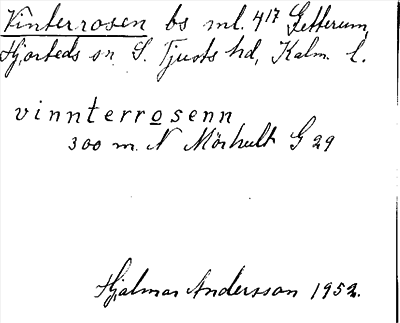 Vinterrosen bs ml. 4¹⁷ Getterum,
Hjorteds sn S. Tjusts hd, Kalm. l.
vinnterrosenn
300 m. N Mörhult G 29
Hjalmar Andersson 1952.